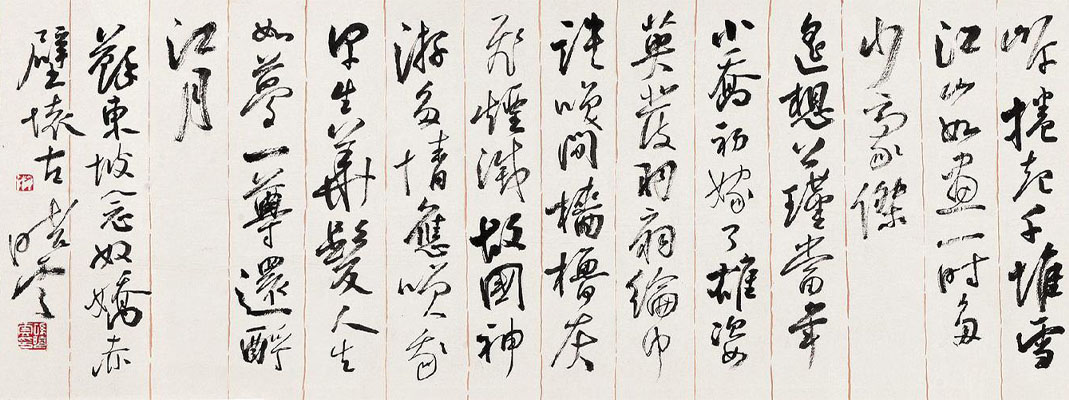 岸捲起千堆雪
江山如畫一時多
少豪傑
遙想公瑾當年
小喬初嫁了雄姿
英發羽扇綸巾
談咲間檣櫓灰
飛煙滅故國神
游多情應咲我
早生華髮人生
如夢一尊還酹
江月
蘇東坡念奴嬌赤
壁懷古 曉雲